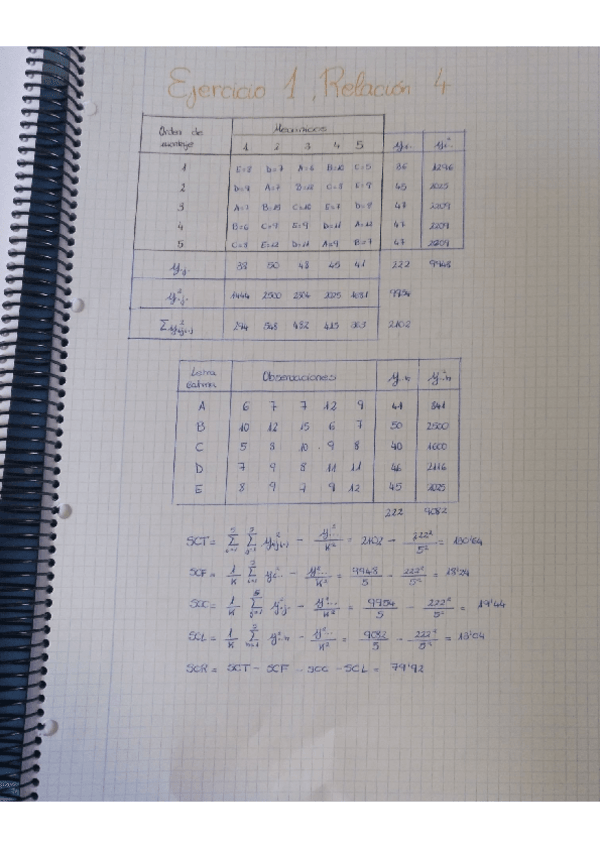 Ejercicio 1, Relación 4
Orden de montaje Mecanicos
1 2 3 4 5 yi.. yi..²
1 E=8 D=7 A=6 B=10 C=5 36 1296
2 D=9 A=7 B=12 C=8 E=9 45 2025
3 A=7 B=15 C=10 E=7 D=8 47 2209
4 B=6 C=9 E=9 D=11 A=12 47 2209
5 C=8 E=12 D=11 A=9 B=7 47 2209
y.j. 38 50 48 45 41 222 9948
y².j. 1444 2500 2304 2025 1681 9954
Σ y²ij(h) 294 548 482 415 363 2102
Letra latina Observaciones y..h y²..h
A 6 7 7 12 9 41 841
B 10 12 15 6 7 50 2500
C 5 8 10 9 8 40 1600
D 7 9 8 11 11 46 2116
E 8 9 7 9 12 45 2025
222 9082
SCT = Σ Σ y²ij(h) - y...²/K² = 2102 - 222²/5² = 130'64
SCF = 1/K Σ y²i.. - y².../K² = 9948/5 - 222²/5² = 18'24
SCC = 1/K Σ y².j. - y².../K² = 9954/5 - 222²/5² = 19'44
SCL = 1/K Σ y²..h - y².../K² = 9082/5 - 222²/5² = 13'04
SCR = SCT - SCF - SCC - SCL = 79'92